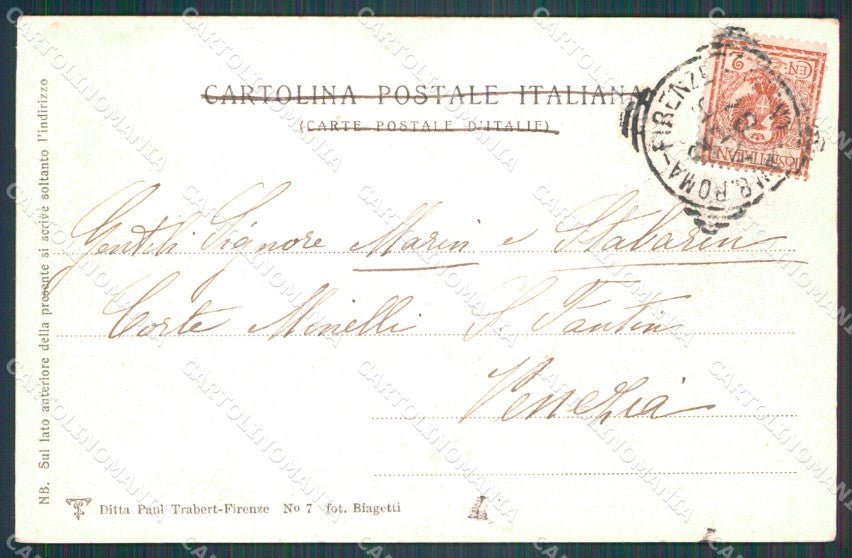 CARTOLINA POSTALE ITALIANA
(CARTE POSTALE D'ITALIE)
ROMA-FIRENZE
Gentili Signore Marin e Stabarin
Corte Minelli S. Fantin
Venezia
NB. Sul lato anteriore della presente si scrive soltanto l'indirizzo
Ditta Paul Trabert-Firenze No 7 fot. Biagetti
T
CARTOLINOMANIA